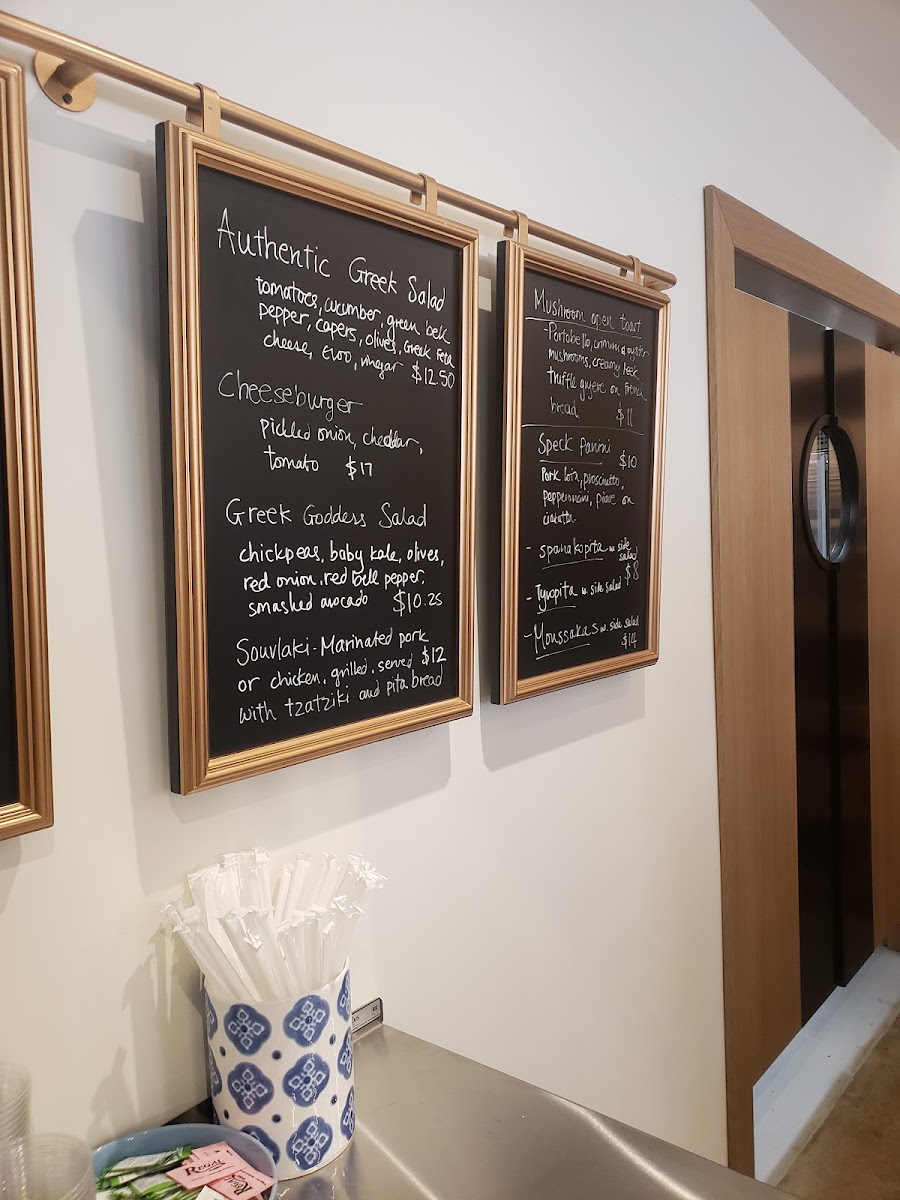 Authentic Greek Salad
tomatoes, cucumber, green bell
pepper, capers, olives, Greek Feta
cheese, EVOO, vinegar $12.50
Cheeseburger
pickled onion, cheddar,
tomato $17
Greek Goddess Salad
chickpeas, baby kale, olives,
red onion, red bell pepper,
smashed avocado $10.25
Souvlaki - Marinated pork
or chicken, grilled, served $12
with tzatziki and pita bread
Mushroom open toast
- Portobello, crimini & oyster
mushrooms, creamy leek
truffle guyere on French
bread $11
Speck Panini $10
Pork loin, prosciutto,
pepperoncini, on
ciabatta.
- spanakopita w side
salad
$8
- Tyropita w. side salad
- Moussaka s w. side salad
$14
REGAL